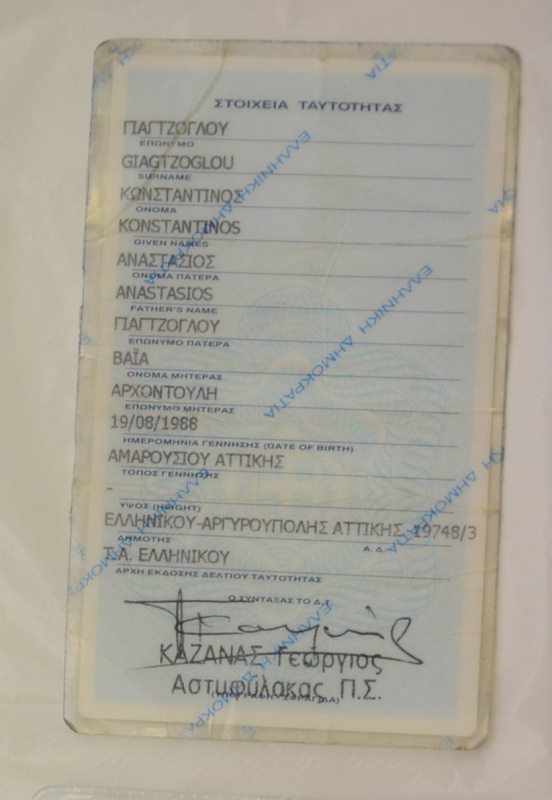 ΣΤΟΙΧΕΙΑ ΤΑΥΤΟΤΗΤΑΣ
ΓΙΑΓΤΖΟΓΛΟΥ
ΕΠΩΝΥΜΟ
GIAGTZOGLOU
SURNAME
ΚΩΝΣΤΑΝΤΙΝΟΣ
ΟΝΟΜΑ
KONSTANTINOS
GIVEN NAMES
ΑΝΑΣΤΑΣΙΟΣ
ΟΝΟΜΑ ΠΑΤΕΡΑ
ANASTASIOS
FATHER'S NAME
ΓΙΑΓΤΖΟΓΛΟΥ
ΕΠΩΝΥΜΟ ΠΑΤΕΡΑ
ΒΑΪΑ
ΟΝΟΜΑ ΜΗΤΕΡΑΣ
ΑΡΧΟΝΤΟΥΛΗ
ΕΠΩΝΥΜΟ ΜΗΤΕΡΑΣ
19/08/1988
ΗΜΕΡΟΜΗΝΙΑ ΓΕΝΝΗΣΗΣ (DATE OF BIRTH)
ΑΜΑΡΟΥΣΙΟΥ ΑΤΤΙΚΗΣ
ΤΟΠΟΣ ΓΕΝΝΗΣΗΣ
-
ΥΨΟΣ (HEIGHT)
ΕΛΛΗΝΙΚΟΥ-ΑΡΓΥΡΟΥΠΟΛΗΣ ΑΤΤΙΚΗΣ 19748/3
ΔΗΜΟΤΗΣ Α.Δ.
Τ.Α. ΕΛΛΗΝΙΚΟΥ
ΑΡΧΗ ΕΚΔΟΣΗΣ ΔΕΛΤΙΟΥ ΤΑΥΤΟΤΗΤΑΣ
Ο ΣΥΝΤΑΞΑΣ ΤΟ Δ.Τ.
ΚΑΖΑΝΑΣ Γεώργιος
Αστυφύλακας Π.Σ.
ΕΛΛΗΝΙΚΗ ΔΗΜΟΚΡΑΤΙΑ
ΕΛΛΗΝΙΚΗ ΔΗΜΟΚΡΑΤΙΑ